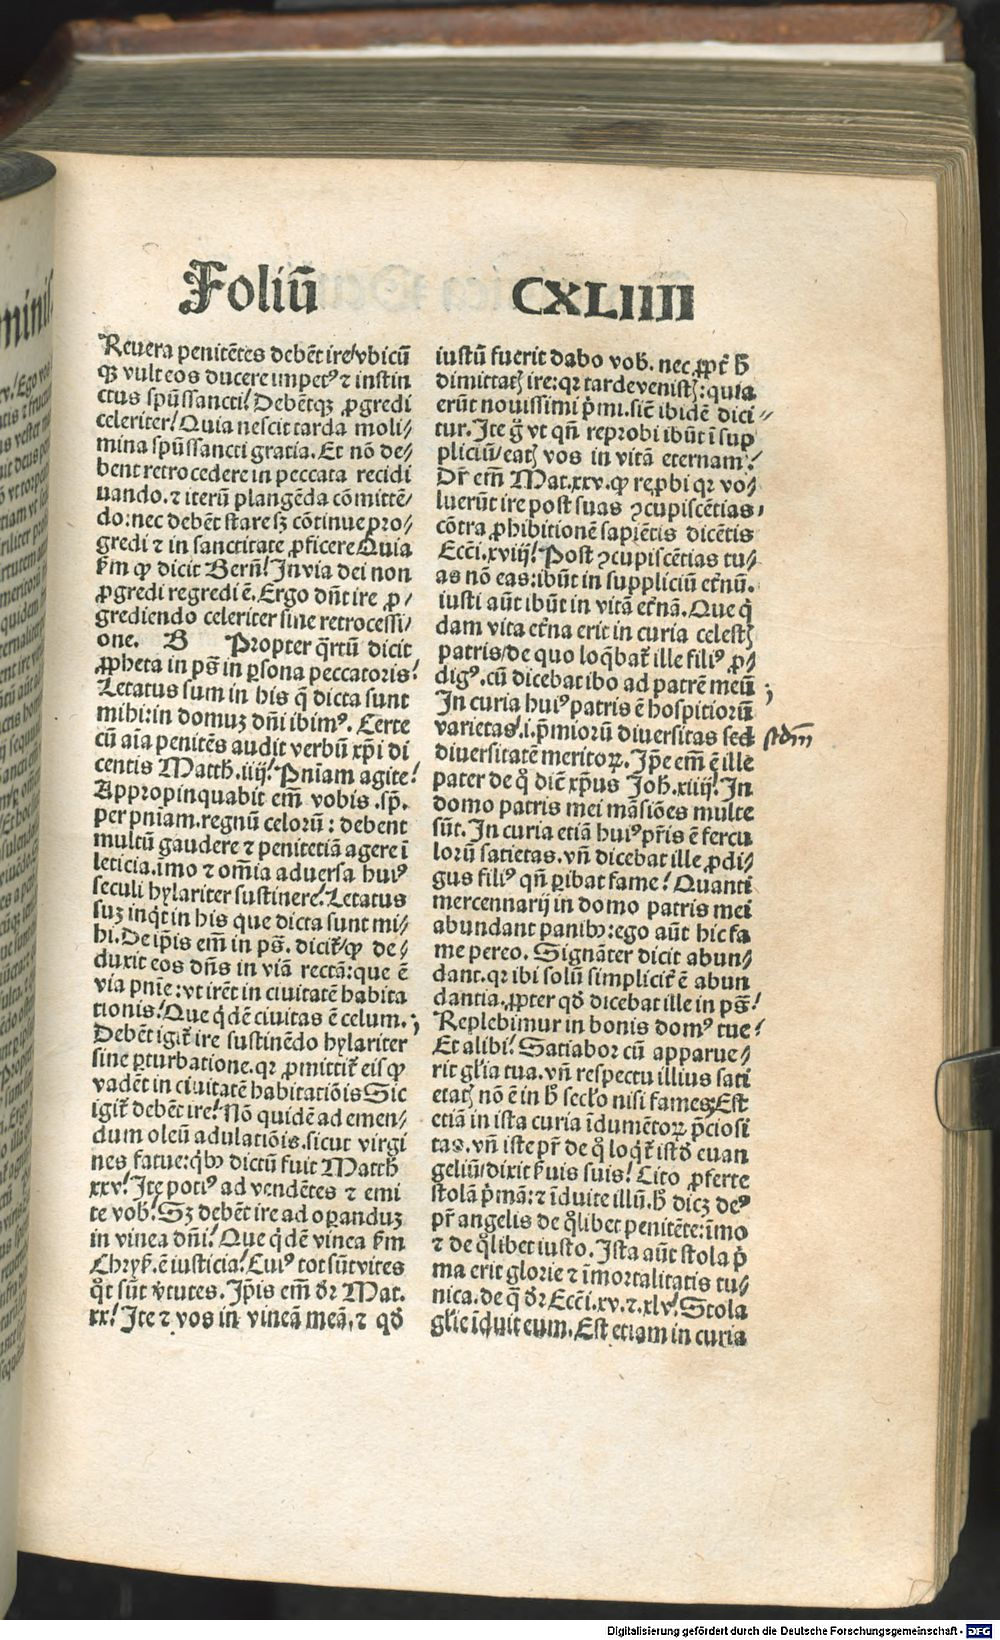 Foliū CXLIIII
Reuera penitētes debēt ire/vbicū
qȝ vult eos ducere impetꝰ ⁊ instin
ctus spūssancti! Debētqȝ ꝓgredi
celeriter! Quia nescit tarda moli/
mina spūssancti gratia. Et nō de/
bent retrocedere in peccata recidi
uando. ⁊ iterū plangēda cōmittē/
do: nec debēt stare sȝ cōtinue pro/
gredi ⁊ in sanctitate ꝓficere Quia
km̄ ꝙ dicit Berñ! In via dei non
ꝓgredi regredi ē. Ergo dn̄t ire ꝓ/
grediendo celeriter sine retrocessi/
one. B Propter q̄rtū dicit
ꝓpheta in pš in ꝑsona peccatoris!
Letatus sum in his q̄ dicta sunt
mihi: in domuȝ dn̄i ibimꝰ. Certe
cū aīa penitēs audit verbū xp̄i di
centis Matth. iiij! Pniam agite!
Appropinquabit em̄ vobis .sp̄.
per pniam. regnū celorū: debent
multū gaudere ⁊ penitētiā agere ī
leticia. imo ⁊ om̄ia aduersa huiꝰ
seculi hylariter sustinere! Letatus
suȝ inq̇t in his que dicta sunt mi/
hi. De ip̄is em̄ in pš. dicit̄/ꝙ de/
duxit eos dn̄s in viā rectā: que ē
via pnie: vt irēt in ciuitatē habita
tionis! Que q̇dē ciuitas ē celum.
Debēt igit̄ ire sustinēdo hylariter
sine ꝑturbatione. qꝛ ꝓmittit̄ eis ꝙ
vadēt in ciuitatē habitatiōis Sic
igit̄ debēt ire! Nō quidē ad emen/
dum oleū adulatiōis. sicut virgi
nes fatue: qb̾ dictū fuit Matth̄
xxv! Ite potiꝰ ad vendētes ⁊ emi
te vob̄! Sȝ debēt ire ad oꝑanduȝ
in vinea dn̄i! Que q̇dē vinea km̄
Chryš. ē iusticia! Cuiꝰ tot sūt vites
qt̊ sūt v̄tutes. Ip̄is em̄ dr̄ Mat.
xx! Ite ⁊ vos in vineā meā, ⁊ qd̄
iustū fuerit dabo vob̄. nec ꝓpt̄ h̄
dimittatꝭ ire: qꝛ tarde venistꝭ: quia
erūt nouissimi p̄mi. sic̄ ibidē dici/
tur. Ite g̊ vt qn̄ reprobi ibūt ī sup
pliciū/eatꝭ vos in vitā eternam!
Dr̄ em̄ Mat. xxv. ꝙ reꝓbi qꝛ vo/
luerūt ire post suas ꝯcupiscētias
cōtra ꝓhibitionē sapiētis dicētis
Ecci. xviij! Post ꝯcupiscētias tu/
as nō eas: ibūt in suppliciū et̄nū.
iusti aūt ibūt in vitā et̄nā. Que q̇
dam vita et̄na erit in curia celestꝭ
patris/de quo loq̄bat̄ ille filiꝰ ꝓ/
digꝰ. cū dicebat ibo ad patrē meū
In curia huiꝰ patris ē hospitiorū
varietas!.i. p̄miorū diuersitas sed stdm̄
diuersitatē meritoꝝ. Ip̄e em̄ ē ille
pater de q̊ dic̄ xp̄us Joh̄. xiiij! In
domo patris mei māsiōes multe
sūt. In curia etiā huiꝰ pr̄is ē fercu
lorū satietas. vn̄ dicebat ille ꝓdi/
gus filiꝰ qn̄ ꝑibat fame! Quanti
mercennarij in domo patris mei
abundant panib̾: ego aūt hic fa
me pereo. Signāter dicit abun/
dant. qꝛ ibi solū simplicit̄ ē abun
dantia. ꝓpter qd̄ dicebat ille in pš!
Replebimur in bonis domꝰ tue!
Et alibi! Satiabor cū apparue/
rit gl̄ia tua. vn̄ respectu illius sati
etatꝭ nō ē in h̄ secl̄o nisi fames. Est
etiā in ista curia īdumētoꝝ p̄ciosi
tas. vn̄ iste pr̄ de q̊ loq̇t̄ istd̄ euan
geliū/dixit š̄uis suis! Cito ꝓferte
stolā p̄mā: ⁊ īduite illū. h̄ dicȝ deꝰ
pr̄ angelis de q̊libet penitēte: īmo
⁊ de q̊libet iusto. Ista aūt stola p̄
ma erit glorie ⁊ īmortalitatis tu/
nica. de q̄ dr̄ Ecci. xv. ⁊. xlv! Stola
gl̄ie īduit eum. Est etiam in curia
Digitalisierung gefördert durch die Deutsche Forschungsgemeinschaft - DFG